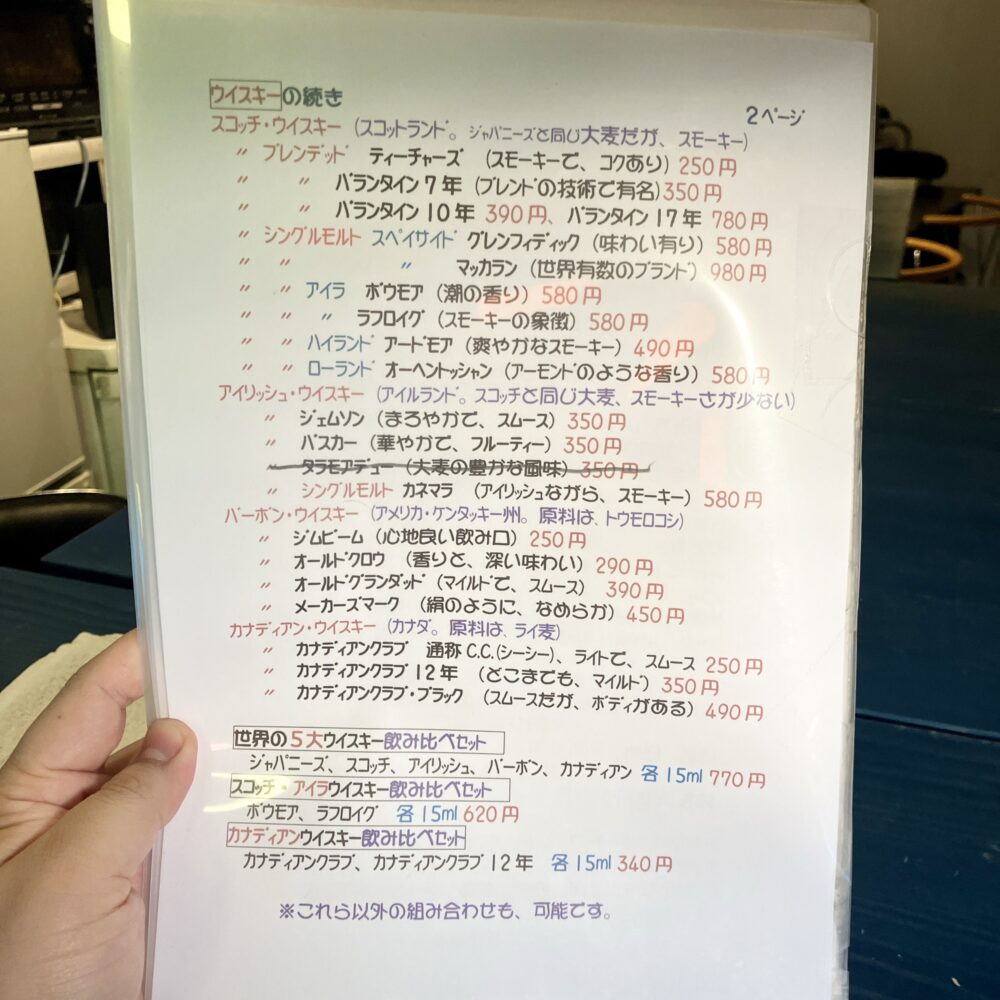 ウイスキーの続き
2ページ
スコッチ・ウイスキー (スコットランド。ジャパニーズと同じ大麦だが、スモーキー)
〃 ブレンデッド ティーチャーズ (スモーキーで、コクあり) 250円
〃 〃 バランタイン7年 (ブレンドの技術で有名) 350円
〃 〃 バランタイン10年 390円、バランタイン17年 780円
〃 シングルモルト スペイサイド グレンフィディック (味わい有り) 580円
〃 〃 〃 マッカラン (世界有数のブランド) 980円
〃 〃 アイラ ボウモア (潮の香り) 580円
〃 〃 〃 ラフロイグ (スモーキーの象徴) 580円
〃 〃 ハイランド アードモア (爽やかなスモーキー) 490円
〃 〃 ローランド オーヘントッシャン (アーモンドのような香り) 580円
アイリッシュ・ウイスキー (アイルランド。スコッチと同じ大麦、スモーキーさが少ない)
〃 ジェムソン (まろやかで、スムース) 350円
〃 バスカー (華やかで、フルーティー) 350円
〃 タラモアデュー (大麦の豊かな風味) 350円
〃 シングルモルト カネマラ (アイリッシュながら、スモーキー) 580円
バーボン・ウイスキー (アメリカ・ケンタッキー州。原料は、トウモロコシ)
〃 ジムビーム (心地良い飲み口) 250円
〃 オールドクロウ (香りと、深い味わい) 290円
〃 オールドグランダッド (マイルドで、スムース) 390円
〃 メーカーズマーク (絹のように、なめらか) 450円
カナディアン・ウイスキー (カナダ。原料は、ライ麦)
〃 カナディアンクラブ 通称C.C.(シーシー)、ライトで、スムース 250円
〃 カナディアンクラブ12年 (どこまでも、マイルド) 350円
〃 カナディアンクラブ・ブラック (スムースだが、ボディがある) 490円
世界の5大ウイスキー飲み比べセット
ジャパニーズ、スコッチ、アイリッシュ、バーボン、カナディアン 各15ml 770円
スコッチ・アイラウイスキー飲み比べセット
ボウモア、ラフロイグ 各15ml 620円
カナディアンウイスキー飲み比べセット
カナディアンクラブ、カナディアンクラブ12年 各15ml 340円
※これら以外の組み合わせも、可能です。